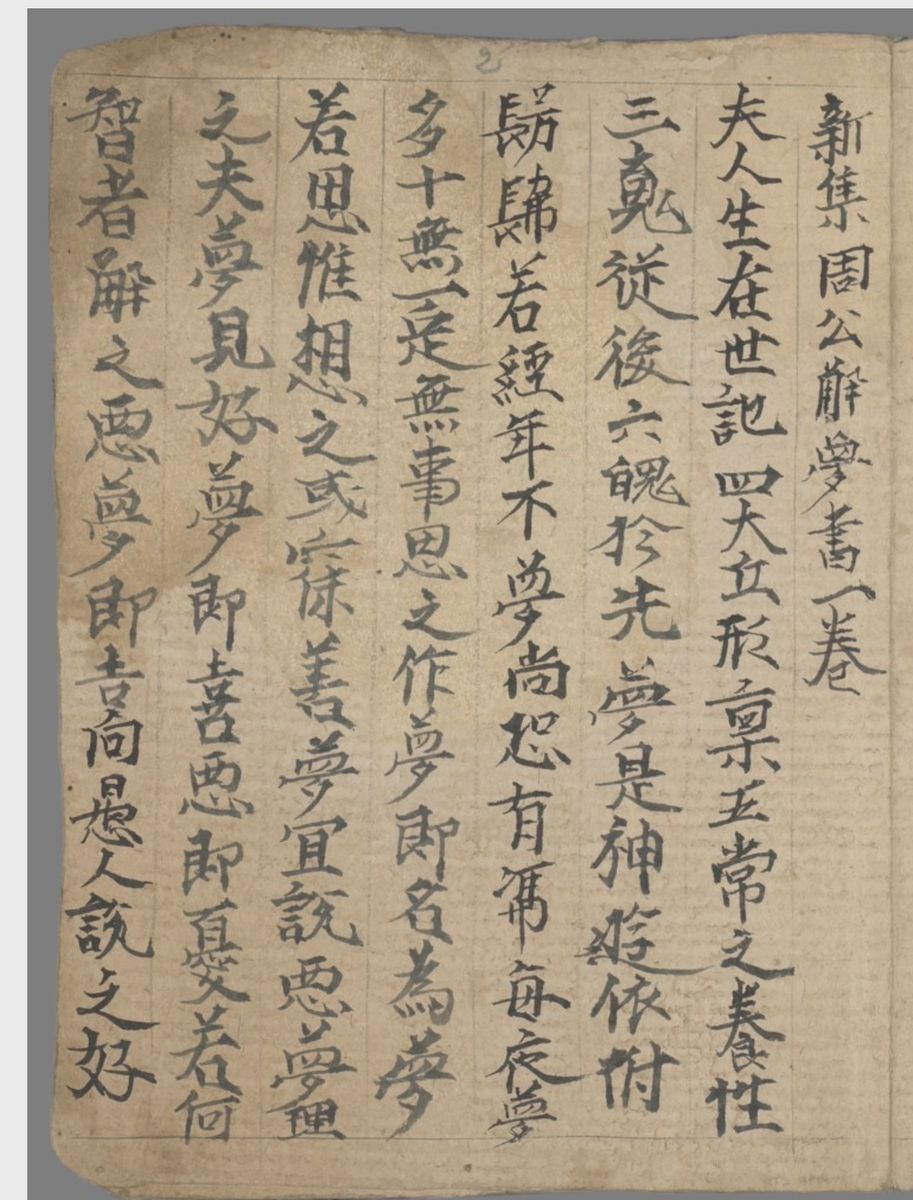 2
新集周公解夢書一卷
夫人生在世記四大立形禀五常之養性
三魂從後六魄於先夢是神遊依附
髣髴若經年不夢尚恐有憑每夜夢
多十無一定無事思之作夢即名為夢
若思惟想之或寐善夢宜説惡夢理
之夫夢見好夢即喜惡即憂若何
智者解之惡夢即吉向愚人説之好